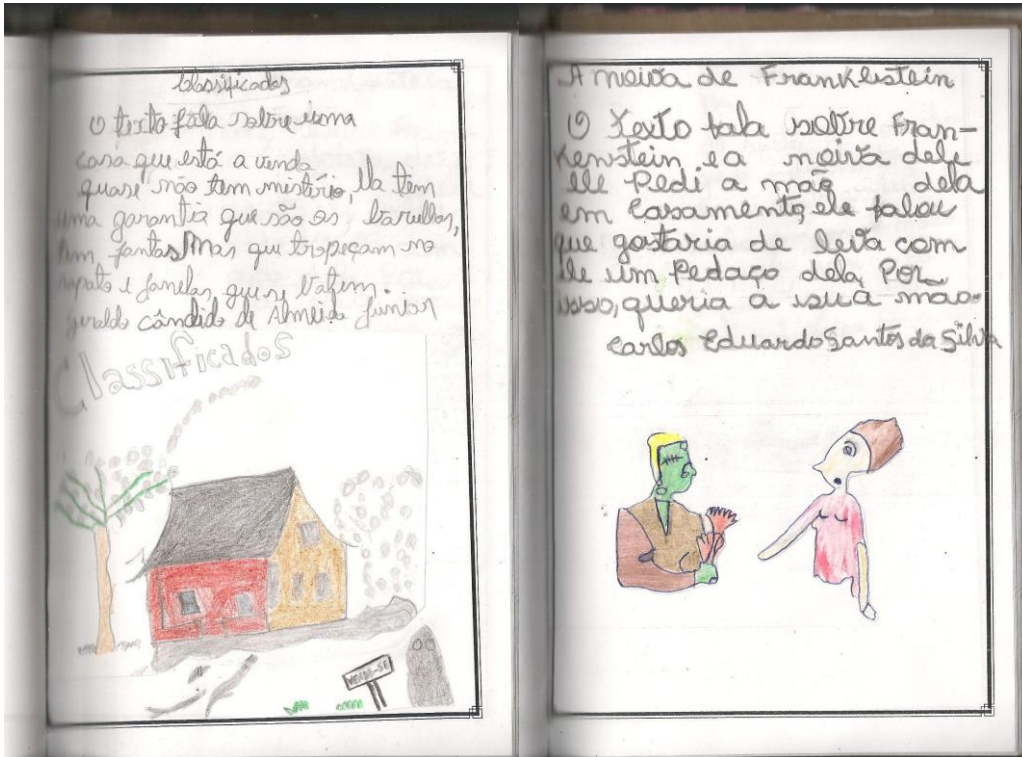 Classificados
O texto fala sobre uma
casa que está a venda
quase não tem mistério, Ela tem
uma garantia que são os barulhos,
tem fantasmas que tropeçam no
sapato e janelas que se batem.
geraldo cândido de Almeida Júnior
Classificados
VENDE-SE
A noiva de Franklistein
O texto fala sobre Fran-
kenstein e a noiva dele
ele Pedi a mão dela
em casamento, ele falou
que gostaria de leva com
ele um Pedaço dela Por
isso, queria a sua mao.
Carlos Eduardo Santos da Silva